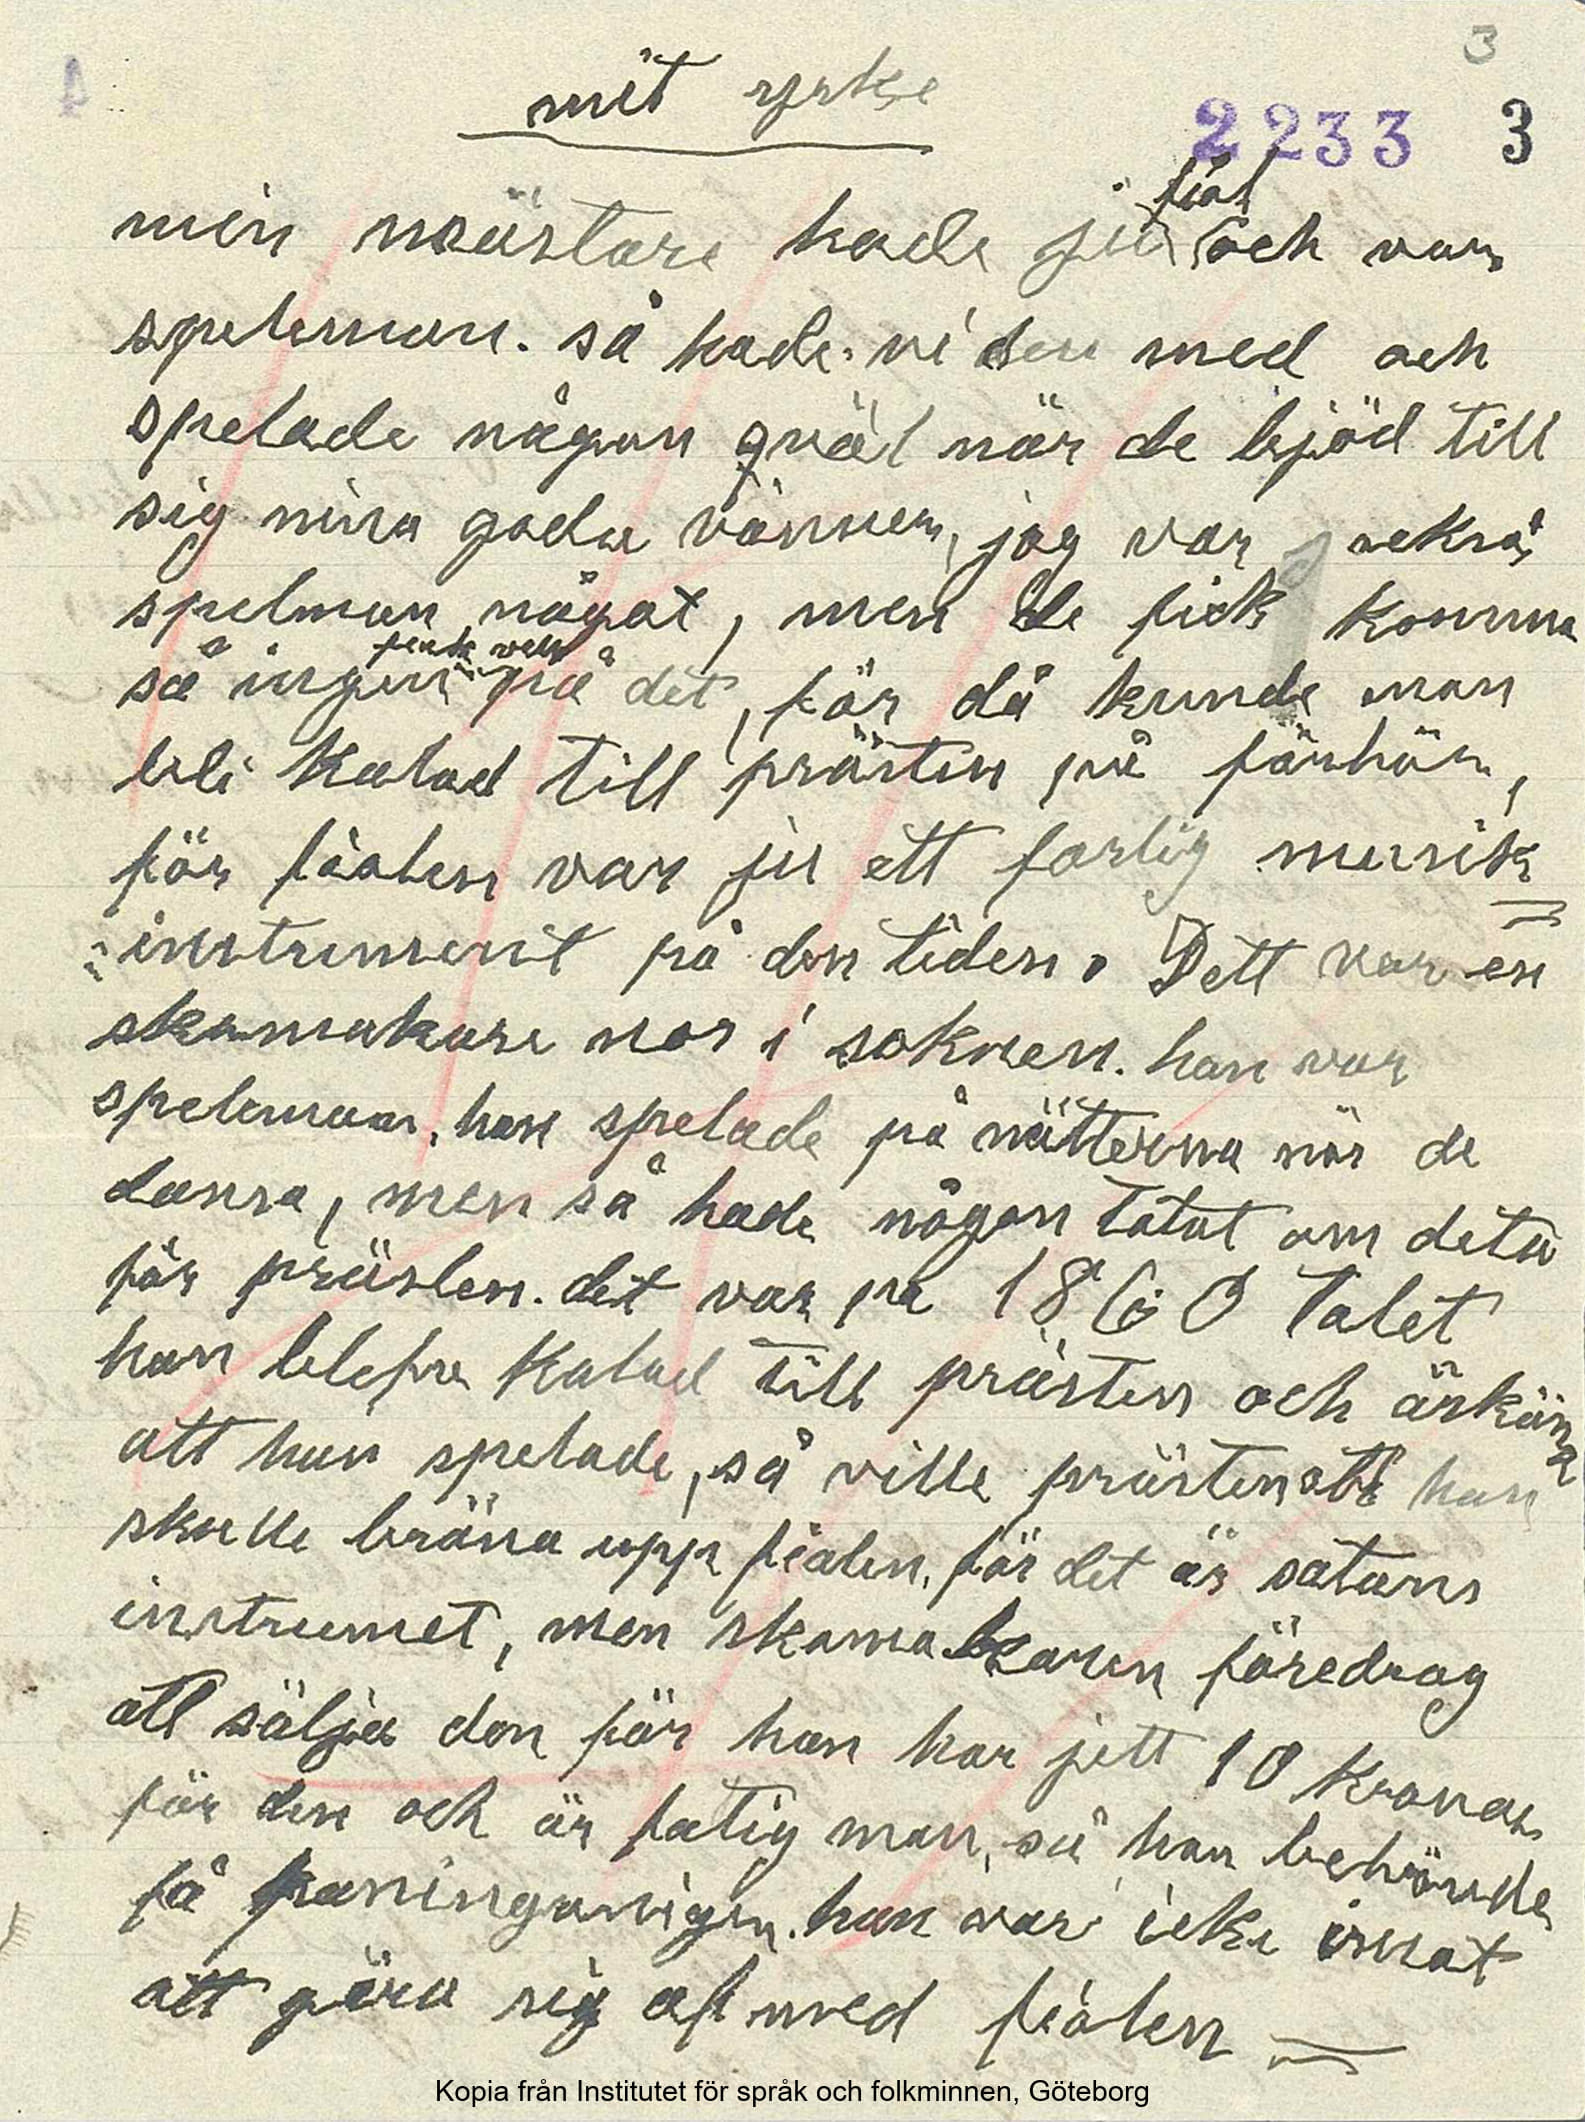 3
mit yrke
2233 3
min mästare hade ju fiol och var
speleman. så hade vi den med och
spelade någon qväl när de bjöd till
sig mina goda vänner, jag var också
spelman något, men de fick komma
så ingen fick veta på det, för då kunde man
bli kalad till prästen på förhör,
för fiolen var ju ett farlig musik
instrument på den tiden. Dett var en
skomakare nor i soknen. han var
speleman, han spelade på nätterna när de
dansa, men så hade någon talat om deta
för prästen. det var på 1860 talet
han blefve kalad till prästen och ärkäna
att han spelade, så ville prästen att han
skulle bräna upp fiolen, för det är satans
instrumet, men skomakaren föredrog
att sälja den för han har jett 10 kronor
för den och är fatig man, så han behövde
få paningan igen. han var icke innat
att göra sig af med fiolen
Kopia från Institutet för språk och folkminnen, Göteborg